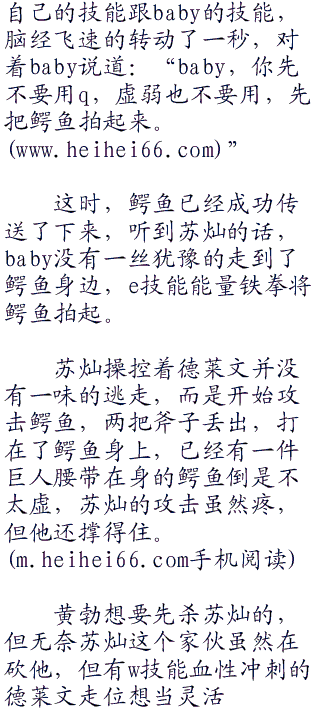 自己的技能跟baby的技能，
脑经飞速的转动了一秒，对
着baby说道：“baby，你先
不要用q，虚弱也不要用，先
把鳄鱼拍起来。
(www.heihei66.com)”
这时，鳄鱼已经成功传
送了下来，听到苏灿的话，
baby没有一丝犹豫的走到了
鳄鱼身边，e技能能量铁拳将
鳄鱼拍起。
苏灿操控着德莱文并没
有一味的逃走，而是开始攻
击鳄鱼，两把斧子丢出，打
在了鳄鱼身上，已经有一件
巨人腰带在身的鳄鱼倒是不
太虚，苏灿的攻击虽然疼，
但他还撑得住。
(m.heihei66.com手机阅读)
黄勃想要先杀苏灿的，
但无奈苏灿这个家伙虽然在
砍他，但有w技能血性冲刺的
德莱文走位想当灵活